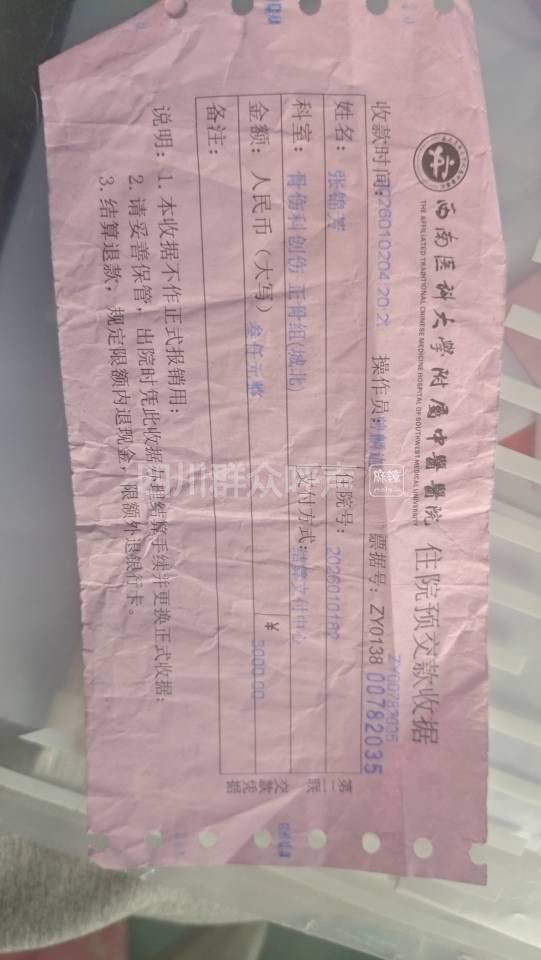 西南医科大学附属中醫醫院 住院预交款收据
THE AFFILIATED TRADITIONAL CHINESE MEDICINE HOSPITAL OF SOUTHWEST MEDICAL UNIVERSITY
ZY00782035
收款时间: 操作员: 票据号: ZY0138 00782035
姓名: 张锦芳 住院号:
科室: 骨伤科创伤 正骨组(城北) 支付方式: 结算支付中心
金额: 人民币(大写) 叁仟元整 ¥ 3000.00
备注:
第二联 交款凭据
说明: 1. 本收据不作正式报销用;
2. 请妥善保管, 出院时凭此收据办理结算手续并更换正式收据;
3. 结算退款, 规定限额内退现金, 限额外退银行卡。
四川群众呼声